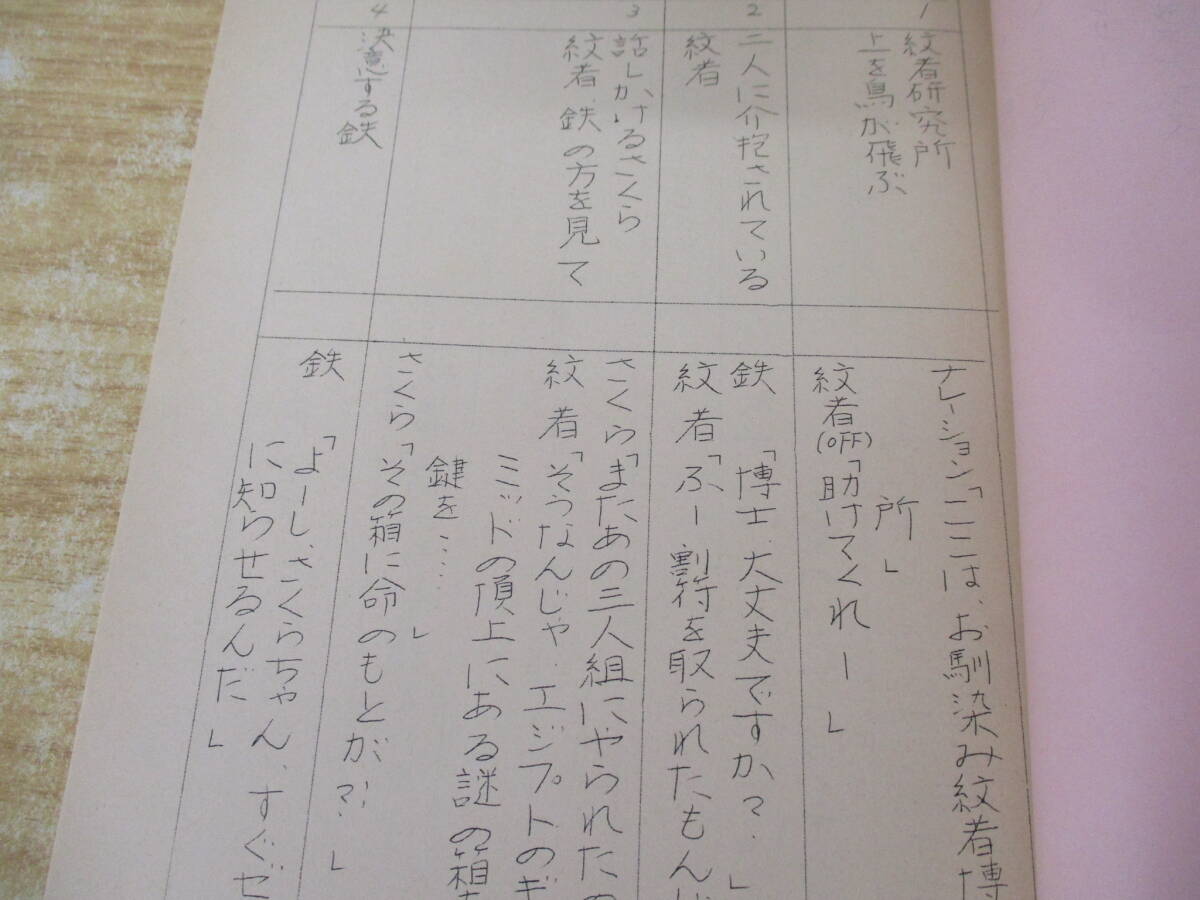 1
紋者研究所
上を鳥が飛ぶ
ナレーション「ここは、お馴染み紋者博
所」
紋者(OFF)「助けてくれー」
2
二人に介抱されている
紋者
鉄「博士、大丈夫ですか?」
紋者「ふー割符を取られたもん
3
話しかけるさくら
紋者、鉄の方を見て
さくら「またあの三人組にやられたの
紋者「そうなんじゃ、エジプトのギ
ミッドの頂上にある謎の箱を
鍵を……」
さくら「その箱に命のもとが?!」
4
決意する鉄
鉄「よーし、さくらちゃん、すぐゼ
に知らせるんだ」